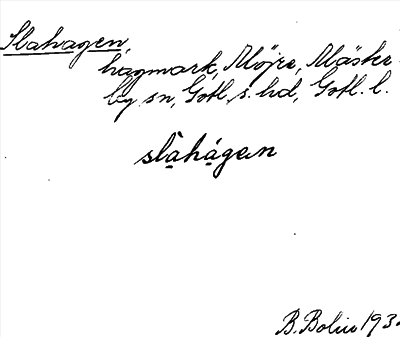 Slahagen,
hagmark, Möjre, Mäster
by sn, Gotl. s. hd, Gotl. l.
slahagen
B. Bolin 193